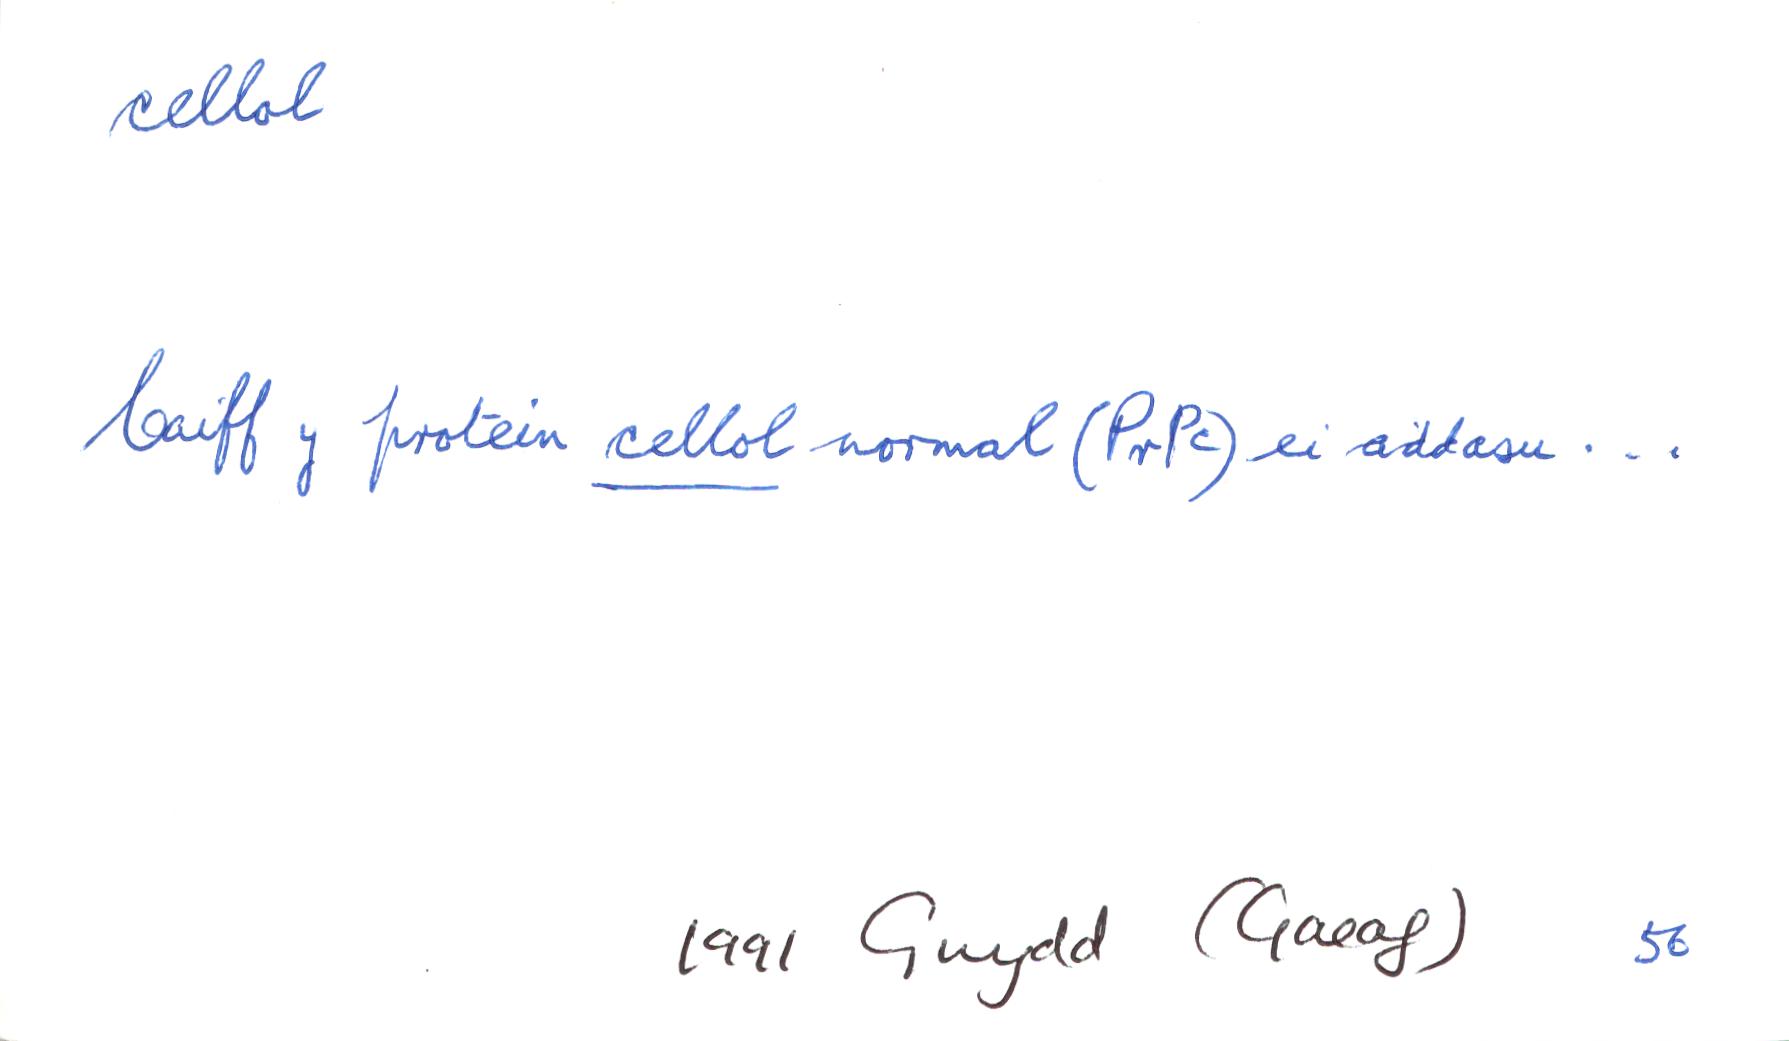 cellol
Caiff y protein cellol normal (PrPc) ei addasu . . .
1991 Gwydd (Gaeaf) 56